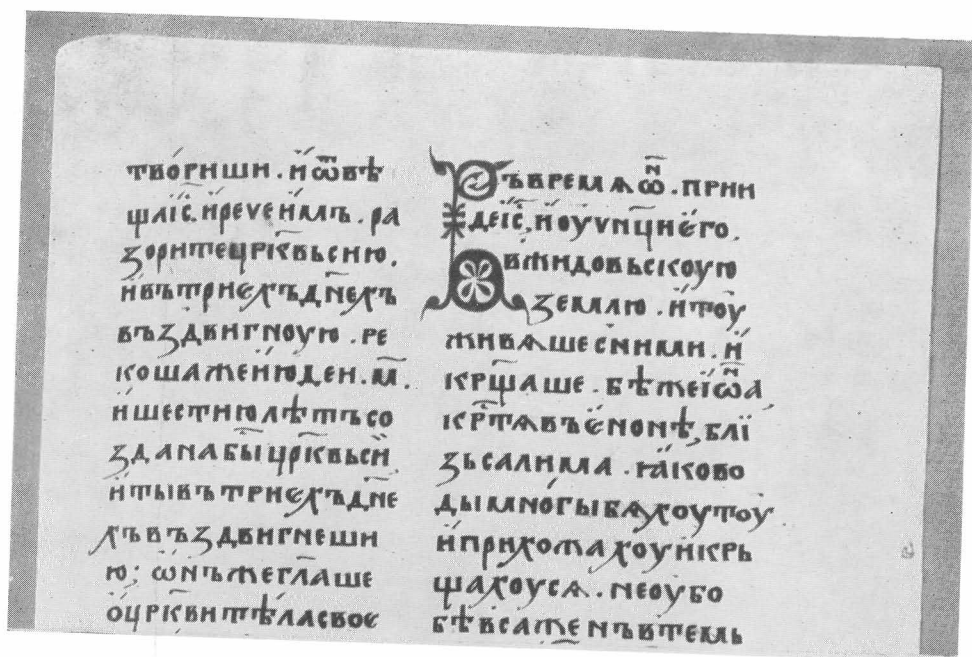 твориши . и ѿвѣ
ща іс̅ . и рече имъ . ра
зорите црк҃вь сию .
и въ трие хъ дн҃ехъ
въздвигноую . ре
коша же июдеи . м҃ .
и шестию лѣтъ со
здана бы црк҃вь си
и ты въ трие хъ дн҃е
хъ въздвигнеши
ю ; ѡнъ же гл҃аше
о црк҃ви тѣла свое
Въ времѧ ѡ҃н . прии
де іс̅ , и оучнци него .
въ жидовьскоую
землю . и тоу
живѧше с ними . и
крщ҃аше . бѣ же іѡ҃а
кр҃тѧ въ енонѣ , бли
зь салима . ꙗко во
ды многы бѧхоу тоу
и прихожахоу и кръ
щахоусѧ . не оу бо
бѣ всаженъ в темь